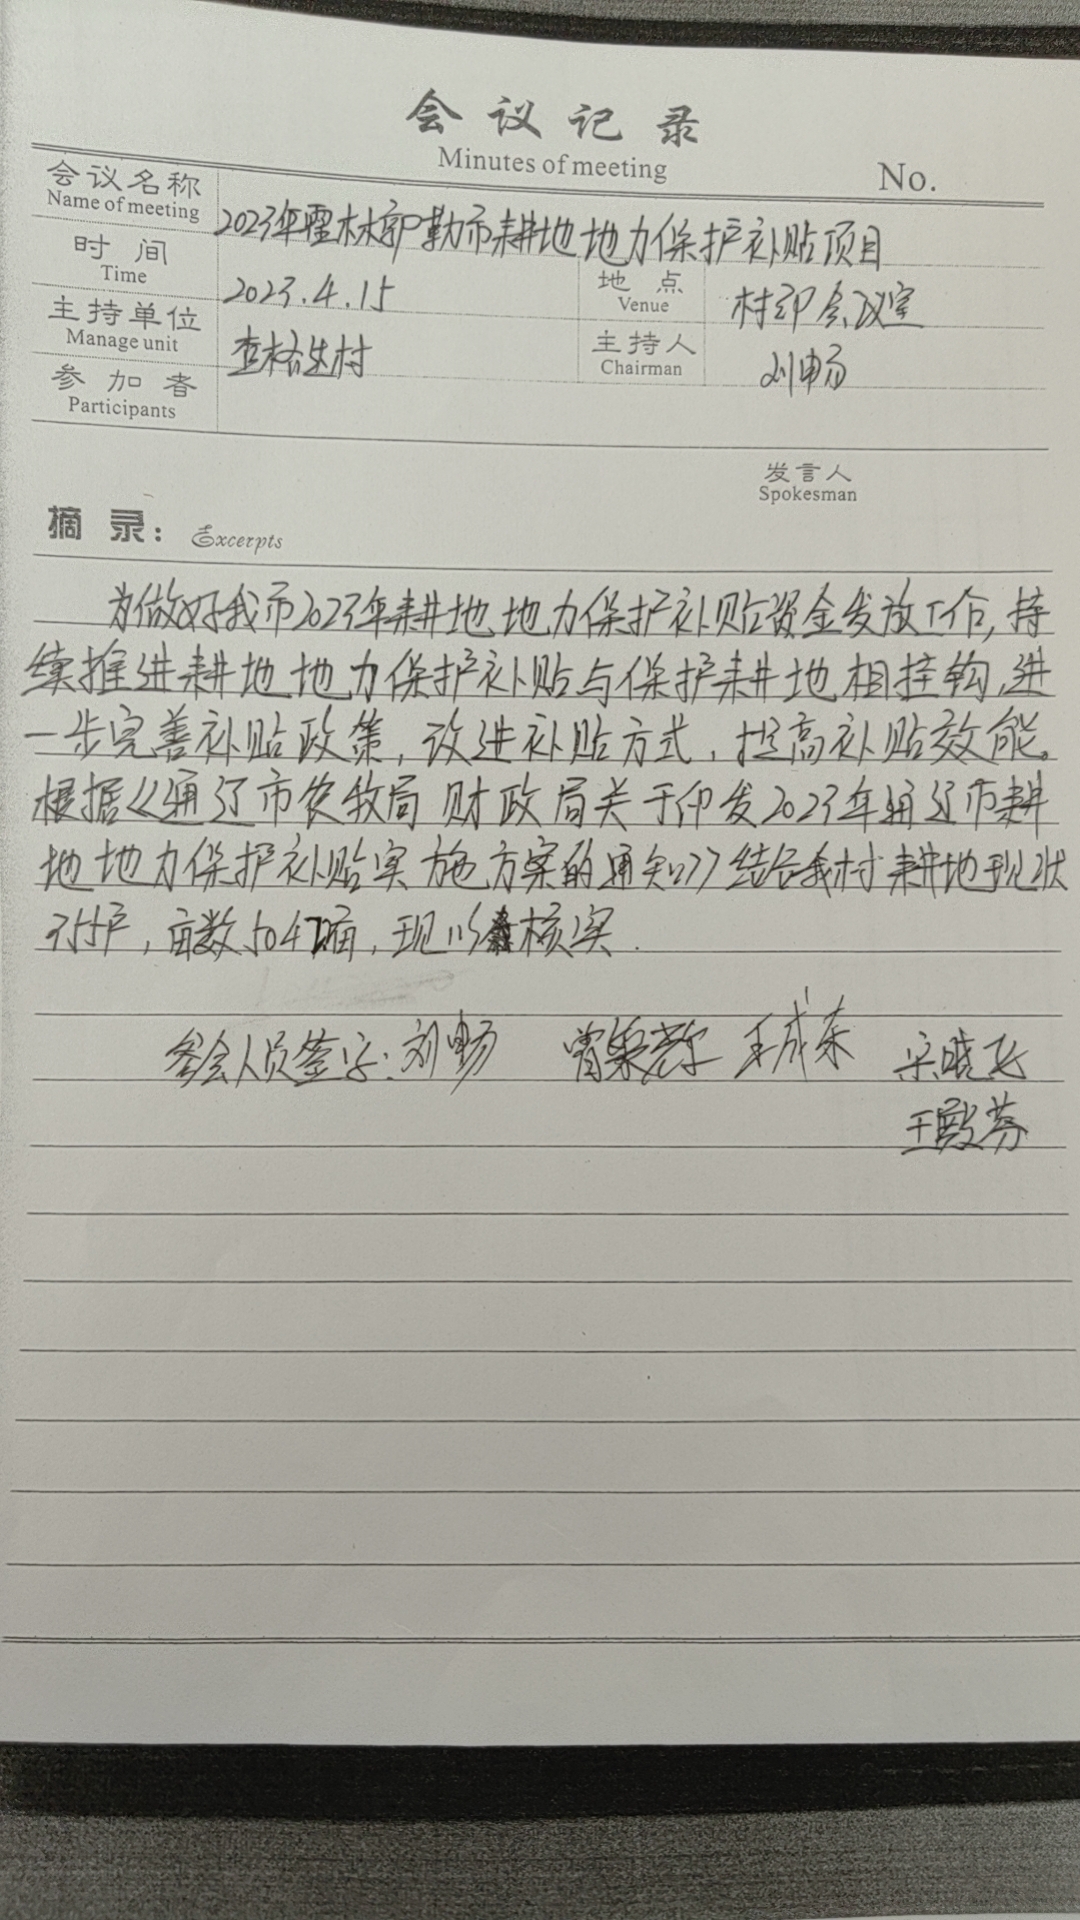 会议记录
Minutes of meeting
No.
会议名称 2023年霍林郭勒市耕地地力保护补贴项目
Name of meeting
时间 2023.4.15 地点 村部会议室
Time Venue
主持单位 查格达村 主持人 刘畅
Manage unit Chairman
参加者
Participants
发言人
Spokesman
摘录： Excerpts
为做好我市2023年耕地地力保护补贴资金发放工作,持
续推进耕地地力保护补贴与保护耕地相挂钩,进
一步完善补贴政策,改进补贴方式,提高补贴效能。
根据《通辽市农牧局 财政局关于印发2023年通辽市耕
地地力保护补贴实施方案的通知》结合我村耕地现状
355户,亩数5047亩,现以核实.
参会人员签字:刘畅 王成东 宋晓飞
王殿芬